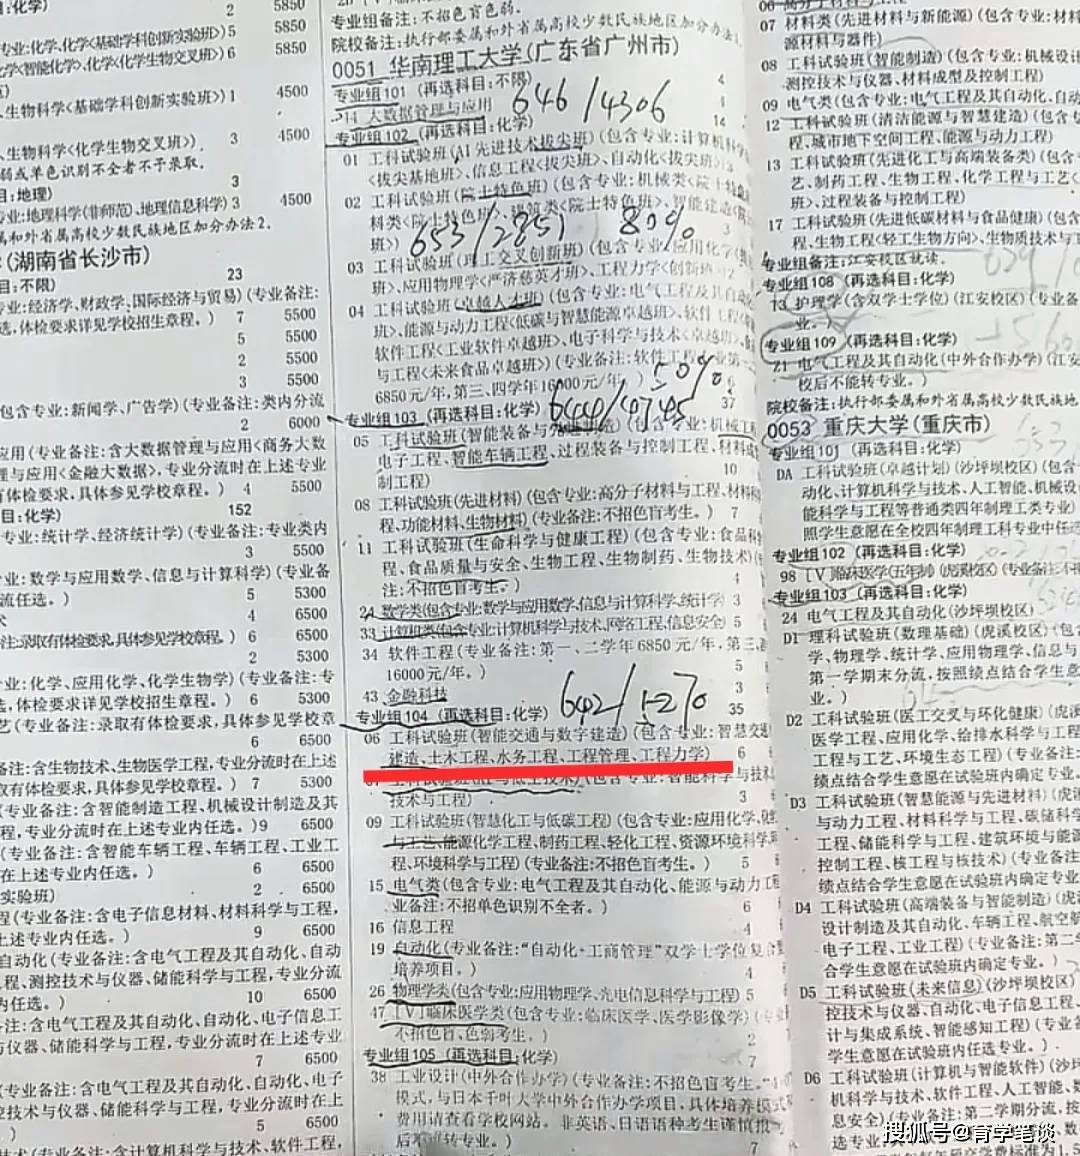 目:化学)
2 5850
专业:化学、化学<基础学科创新实验班>)5 5850
化学<智能化学>、化学<化学生物交叉班>)6 5850
、生物科学<基础学科创新实验班>)1 4500
、生物科学<化学生物交叉班>) 3 4500
弱或单色识别不全者不予录取。
目:地理) 3
专业:地理科学(非师范)、地理信息科学)3 4500
属和外省属高校少数民族地区加分办法2。
(湖南省长沙市)
目:不限) 23
专业:经济学、财政学、国际经济与贸易)(专业备注:
选,体检要求详见学校招生章程。) 7 5500
5 5500
2 5500
3 5500
包含专业:新闻学、广告学)(专业备注:类内分流
2 6000
应用(专业备注:含大数据管理与应用<商务大数
理与应用<金融大数据>,专业分流时在上述专业
有体检要求,具体参见学校章程。) 4 5500
目:化学) 152
专业:统计学、经济统计学)(专业备注:专业类内
3 5500
业:数学与应用数学、信息与计算科学)(专业备
流任选。) 5 5300
4 6500
注:录取有体检要求,具体参见学校章程。) 6 6500
2 5300
业:化学、应用化学、化学生物学)(专业备注:专
选,体检要求详见学校招生章程。) 6 5300
艺(专业备注:录取有体检要求,具体参见学校章
6 6500
备注:含生物技术、生物医学工程,专业分流时在上
取有体检要求,具体参见学校章程。) 7 5300
(专业备注:含智能制造工程、机械设计制造及其
程,专业分流时在上述专业内任选。)9 6500
(专业备注:含智能车辆工程、车辆工程、工业工
在上述专业内任选。) 6 6500
实验班) 2 6500
程(专业备注:含电子信息材料、材料科学与工程,
上述专业内任选。) 9 6500
自动化(专业备注:含电气工程及其自动化、自动
工程、测控技术与仪器、储能科学与工程,专业分流
内任选。) 10 6500
注:含电气工程及其自动化、自动化、电子信息工
与仪器、储能科学与工程,专业分流时在上述专业
7 6500
(专业备注:含电气工程及其自动化、自动化、电子
控技术与仪器、储能科学与工程,专业分流时在上述
) 5 6500
技术(专业备注:含计算机科学与技术、软件工程、
专业组备注:不招色盲色弱。
院校备注:执行部委属和外省属高校少数民族地区加分办法1。
0051 华南理工大学(广东省广州市)
专业组101 (再选科目:不限) 4
14 大数据管理与应用 4
646/4306
专业组102 (再选科目:化学) 14
01 工科试验班(AI先进技术拔尖班)(包含专业:计算机科
<拔尖基地班>、信息工程<拔尖班>、自动化<拔尖班>)
02 工科试验班(院士特色班)(包含专业:机械类<院士特
料类<院士特色班>、建筑类<院士特色班>、智能建造<院
班>)
653/2851 80%
03 工科试验班(理工交叉创新班)(包含专业:应用化学<
班>、应用物理学<严济慈英才班>、工程力学<创新班>)2
04 工科试验班(卓越人才班)(包含专业:电气工程及其自动
班>、能源与动力工程<低碳与智慧能源卓越班>、软件工程<
软件工程<工业软件卓越班>、电子科学与技术<卓越班>、
与工程<未来食品卓越班>)(专业备注:软件工程专业第一
6850元/年,第三、四学年16000元/年。)
50%
专业组103 (再选科目:化学) 37
644/4745
05 工科试验班(智能装备与先进制造)(包含专业:机械工程
电子工程、智能车辆工程、过程装备与控制工程、材料成
制工程) 10
08 工科试验班(先进材料)(包含专业:高分子材料与工程、材料科
程、功能材料、生物材料)(专业备注:不招色盲考生。) 7
11 工科试验班(生命科学与健康工程)(包含专业:食品科
程、食品质量与安全、生物工程、生物制药、生物技术)(
注:不招色盲考生。) 4
24 数学类(包含专业:数学与应用数学、信息与计算科学、统计学) 3
33 计算机类(包含专业:计算机科学与技术、网络工程、信息安全) 5
34 软件工程(专业备注:第一、二学年6850元/年,第三、
16000元/年。) 5
43 金融科技 3
专业组104 (再选科目:化学) 35
642/5270
06 工科试验班(智能交通与数字建造)(包含专业:智慧交通
建造、土木工程、水务工程、工程管理、工程力学) 6
技术)(包含专业:智能科学与技
技术与工程) 3
09 工科试验班(智慧化工与低碳工程)(包含专业:应用化学、
与工艺、能源化学工程、制药工程、轻化工程、资源环境科学
程、环境科学与工程)(专业备注:不招色盲考生。) 5
15 电气类(包含专业:电气工程及其自动化、能源与动力工程
业备注:不招单色识别不全者。) 6
16 信息工程 4
19 自动化(专业备注:“自动化+工商管理”双学士学位复合
培养项目。) 4
26 物理学类(包含专业:应用物理学、光电信息科学与工程) 5
47 [V]临床医学类(包含专业:临床医学、医学影像学)(专业
不招色盲、色弱考生。) 2
专业组105 (再选科目:化学) 7
38 工业设计(中外合作办学)(专业备注:不招色盲考生。
模式,与日本千叶大学中外合作办学项目,具体培养模式
费用请查看学校网站。非英语、日语语种考生谨慎填报
后不可转专业。) 7
07 材料类(先进材料与新能源)(包含专业:材料
源材料与器件)
08 工科试验班(智能制造)(包含专业:机械设计
、测控技术与仪器、材料成型及控制工程)
09 电气类(包含专业:电气工程及其自动化、自动
12 工科试验班(清洁能源与智慧建造)(包含专
程、城市地下空间工程、能源与动力工程)
13 工科试验班(先进化工与高端装备类)(包含
艺、制药工程、生物工程、化学工程与工艺<
班>、过程装备与控制工程)
17 工科试验班(先进低碳材料与食品健康)(包含
程、生物工程<轻工生物方向>、生物质技术与工
专业组备注:江安校区就读。
专业组108 (再选科目:化学)
13 护理学(含双学士学位)(江安校区)(专业备
业。)
专业组109 (再选科目:化学)
21 电气工程及其自动化(中外合作办学)(江安
校后不能转专业。)
院校备注:执行部委属和外省属高校少数民族地
0053 重庆大学(重庆市)
专业组101 (再选科目:化学)
DA 工科试验班(卓越计划)(沙坪坝校区)(包含
动化、计算机科学与技术、人工智能、机械设
能科学与工程等普通类四年制理工类专业)
照学生意愿在全校四年制理工科专业中任选
专业组102 (再选科目:化学)
98 [V]临床医学(五年制)(虎溪校区)(专业备注:不招
专业组103 (再选科目:化学)
24 电气工程及其自动化(沙坪坝校区)
D1 理科试验班(数理基础)(虎溪校区)(包含
学、物理学、统计学、应用物理学、信息与
第一学期末分流,按照绩点结合学生意
业。)
D2 工科试验班(医工交叉与环化健康)(虎溪
医学工程、应用化学、给排水科学与工程
工程与工艺、环境生态工程)(专业备注:
绩点结合学生意愿在试验班内确定专业。
D3 工科试验班(智慧能源与先进材料)(虎
与动力工程、材料科学与工程、碳储科学
工程、储能科学与工程、建筑环境与能源
控制工程、核工程与核技术)(专业备注
绩点结合学生意愿在试验班内确定专业
D4 工科试验班(高端装备与智能制造)(虎
设计制造及其自动化、车辆工程、航空航
电子工程、工业工程)(专业备注:第二
合学生意愿在试验班内确定专业。)
D5 工科试验班(未来信息)(沙坪坝校区)
控技术与仪器、自动化、电子信息工程、
计与集成系统、智能感知工程)(专业备
学生意愿在试验班内任选专业。)
D6 工科试验班(计算机与智能软件)(沙坪
机科学与技术、软件工程、人工智能、数
息安全)(专业备注:第二学期分流,按
搜狐号@育学笔谈